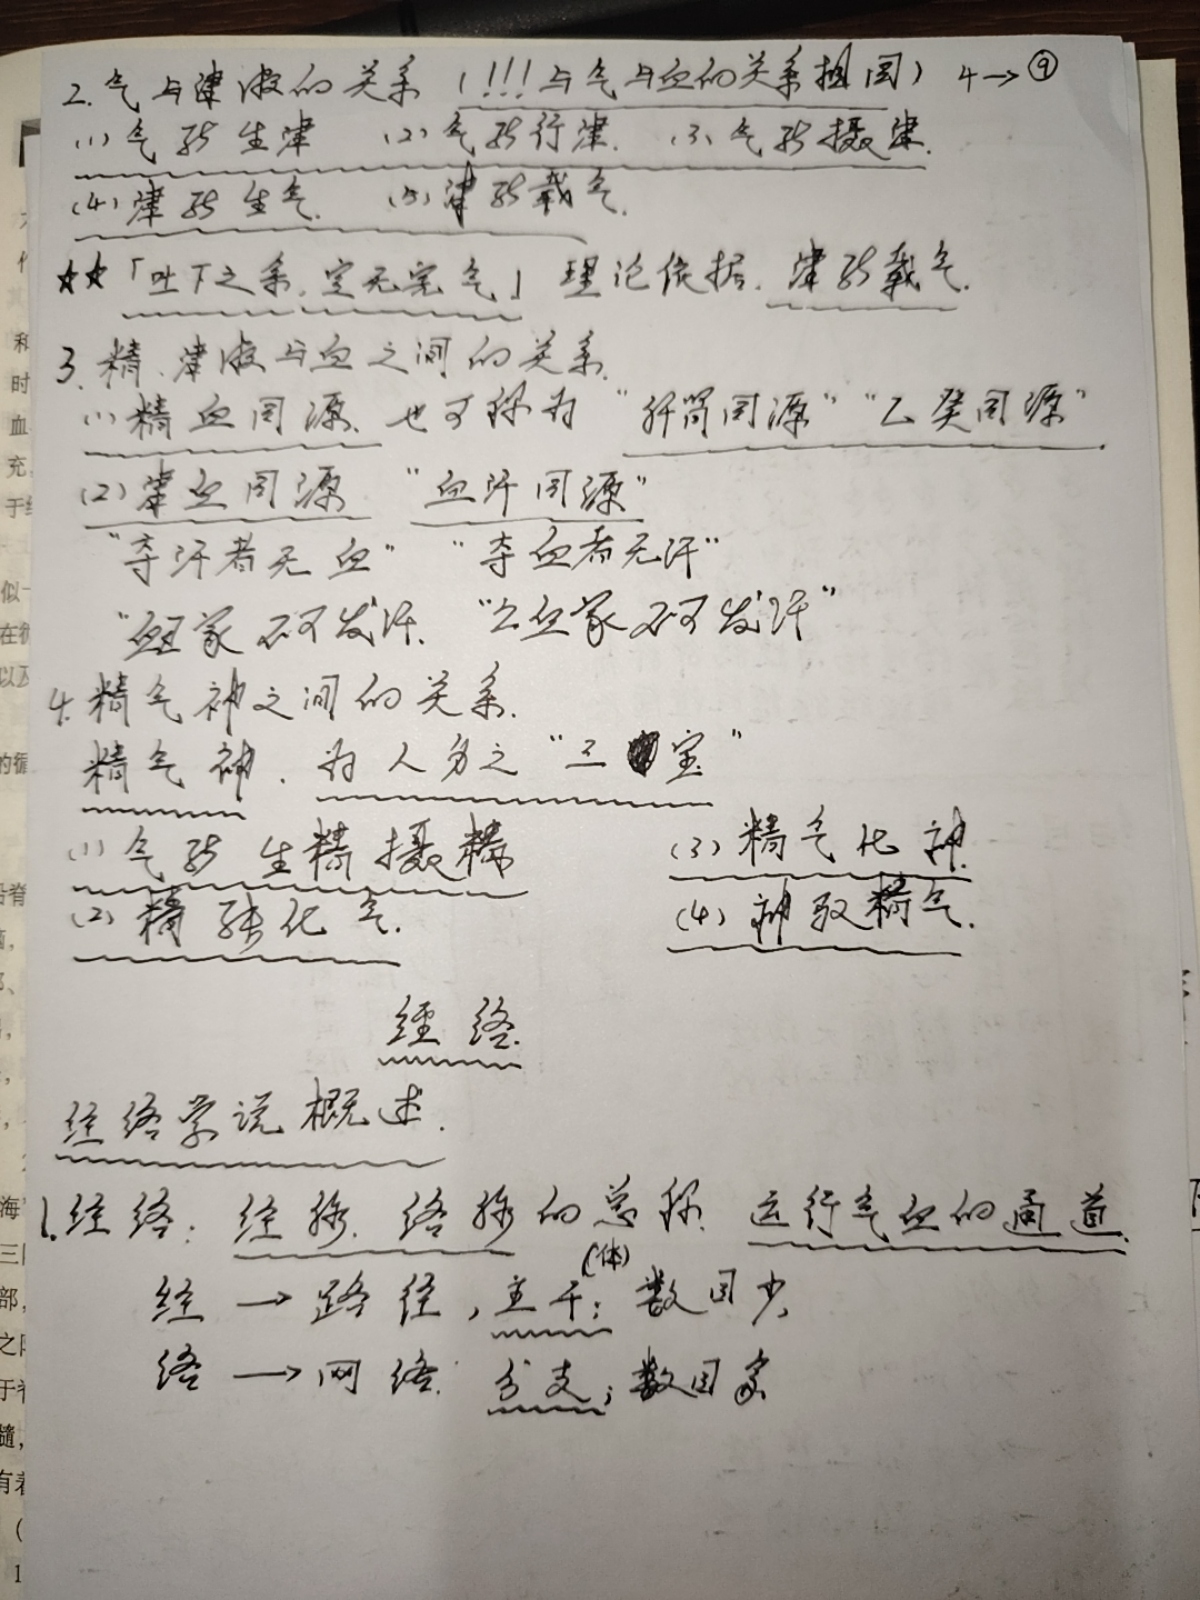 2.气与津液的关系 (!!!与气与血的关系相同) 4→⑨
(1)气能生津 (2)气能行津. (3)气能摄津.
(4)津能生气. (5)津能载气.
★★「吐下之余,定无完气」理论依据.津能载气.
3.精、津液与血之间的关系.
(1)精血同源.也可称为“肝肾同源”“乙癸同源”
(2)津血同源 “血汗同源”
“夺汗者无血” “夺血者无汗”
“衄家不可发汗. “亡血家不可发汗”
4.精气神之间的关系.
精气神.为人身之“三宝”
(1)气能生精摄精 (3)精气化神.
(2)精能化气. (4)神驭精气.
经络.
经络学说概述.
1.经络:经脉.络脉的总称.运行气血的通道.
(体)
经→路径,主干;数目少,
络→网络.分支;数目多
和
时
血
充,
似
在
以及
的循
海
三
部,
之
髓,
有着
(
1